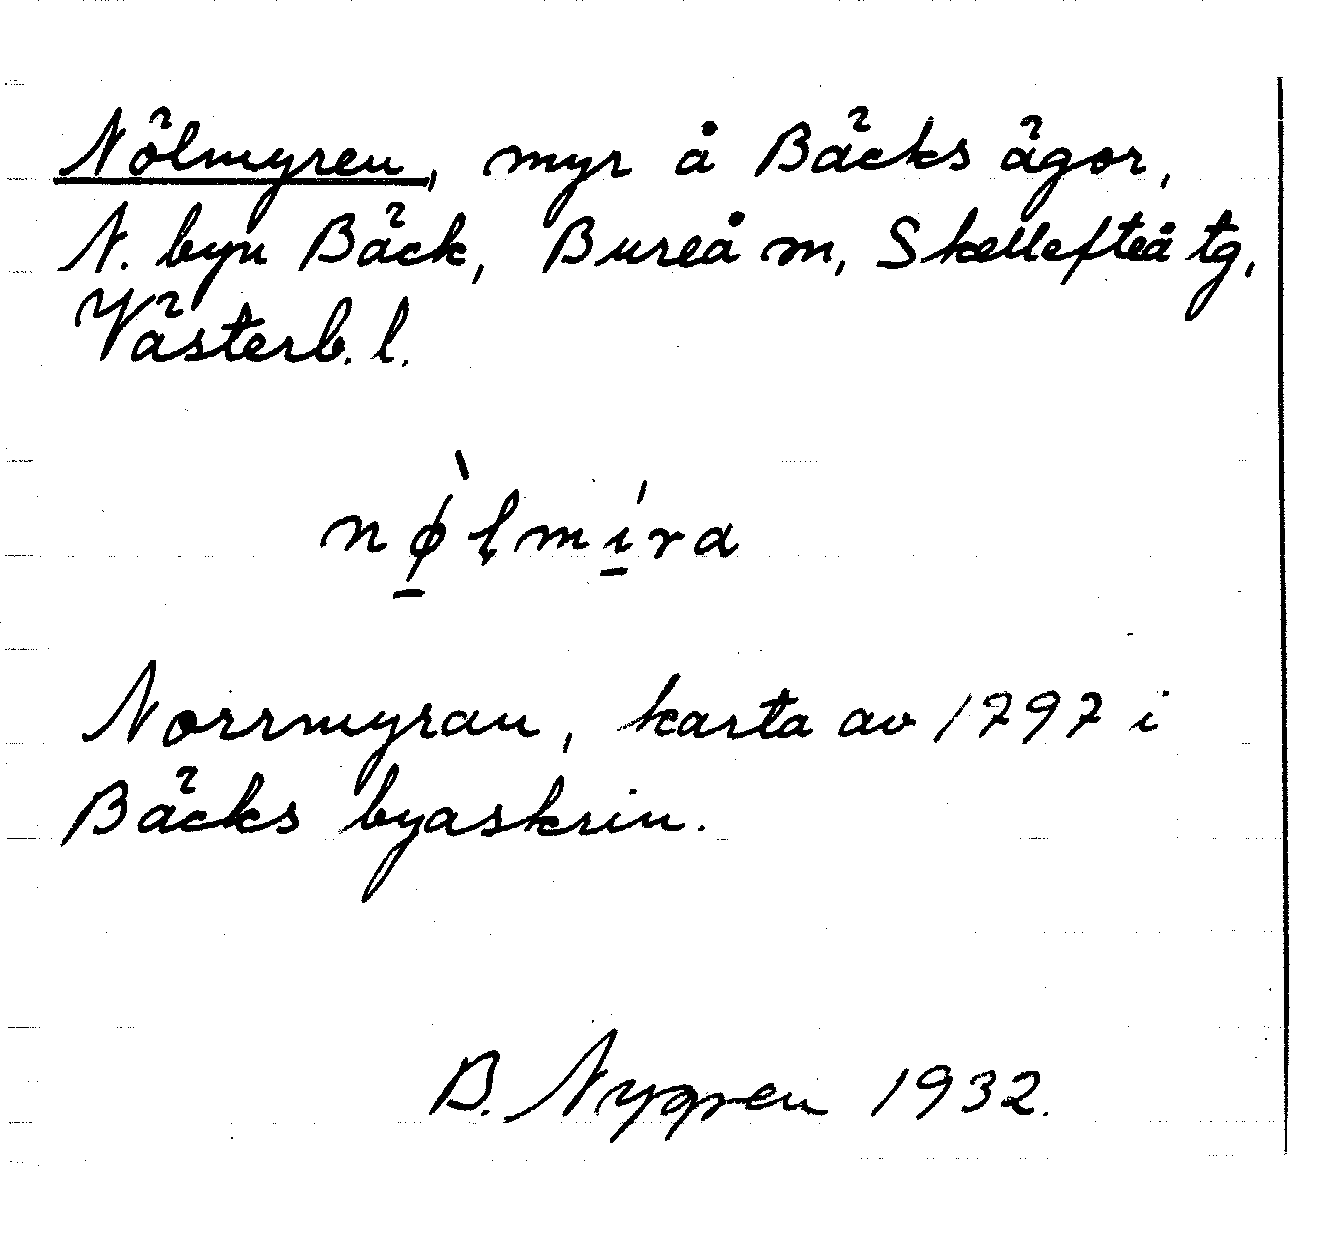 Nölmyren, myr å Bäcks ägor,
N. byn Bäck, Bureå m, Skellefteå tg,
Västerb. l.
nø̠̀lmí̠ra
Norrmyran, karta av 1797 i
Bäcks byaskrin.
B. Nygren 1932.